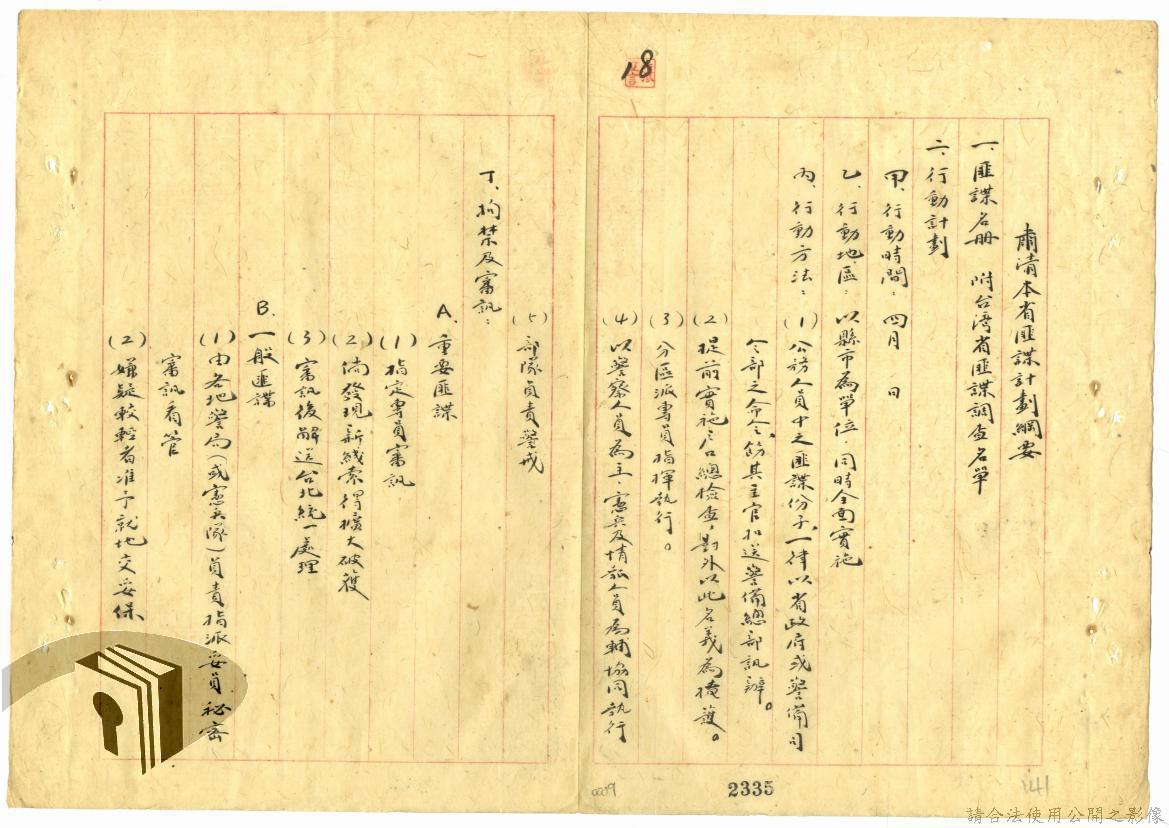 18
肅清本省匪諜計劃綱要
一、匪諜名冊　附台湾省匪諜調查名單
二、行動計劃
甲、行動時間：四月　日
乙、行動地區：以縣市為單位，同時全面實施
丙、行動方法：(1)公務人員中之匪諜份子，一律以省政府或警備司
令部之命令，飭其主官扣送警備總部訊辦。
(2)提前實施戶口總檢查，對外以此名義為掩護。
(3)分區派專員指揮執行。
(4)以警察人員為主，憲兵及情報人員為輔協同執行
(5)部隊負責警戒
丁、拘禁及審訊：
A、重要匪諜
(1)指定專員審訊
(2)倘發現新綫索得擴大破獲
(3)審訊後解送台北統一處理
B、一般匪諜
(1)由各地警局(或憲兵隊)負責指派妥員秘密
審訊看管
(2)嫌疑較輕者准予就地交妥保
0009
2335
141
請合法使用公開之影像